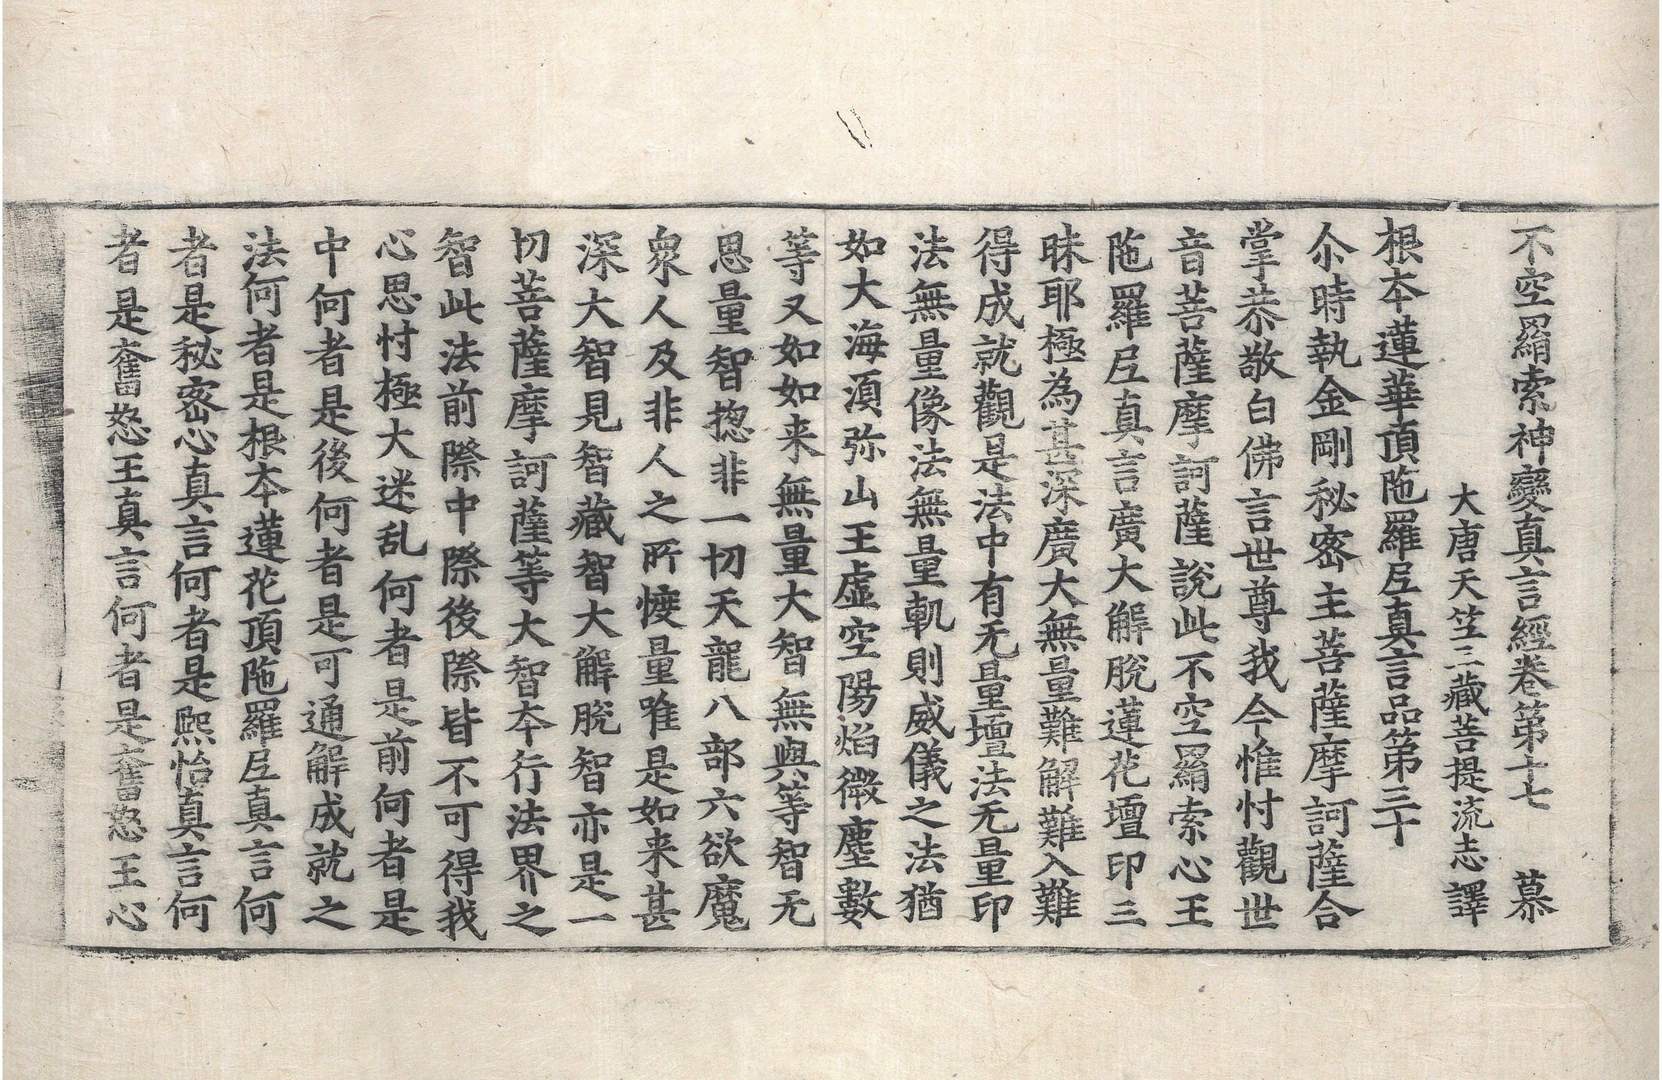 不空羂索神變真言經卷第十七　慕
大唐天竺三藏菩提流志譯
根本蓮華頂陁羅尼真言品第三十
尒時執金剛秘密主菩薩摩訶薩合
掌恭敬白佛言世尊我今惟忖觀世
音菩薩摩訶薩說此不空羂索心王
陁羅尼真言廣大解脫蓮花壇印三
昧耶極為甚深廣大無量難解難入難
得成就觀是法中有无量壇法无量印
法無量像法無量軌則威儀之法猶
如大海湏弥山王虛空陽焰微塵數
等又如如来無量大智無與等智无
思量智揔非一切天龍八部六欲魔
衆人及非人之所㥄量唯是如来甚
深大智見智藏智大解脫智亦是一
切菩薩摩訶薩等大智本行法界之
智此法前際中際後際皆不可得我
心思忖極大迷乱何者是前何者是
中何者是後何者是可通解成就之
法何者是根本蓮花頂陁羅尼真言何
者是秘密心真言何者是熈怡真言何
者是奮怒王真言何者是奮怒王心